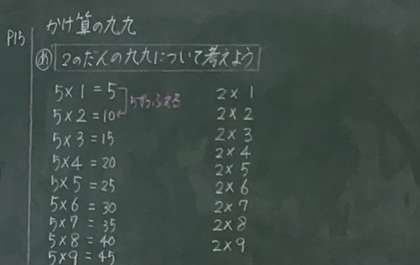 P15 かけ算の九九
め 2のだんの九九について考えよう
5×1=5
5×2=10
5ずつふえる
5×3=15
5×4=20
5×5=25
5×6=30
5×7=35
5×8=40
5×9=45
2×1
2×2
2×3
2×4
2×5
2×6
2×7
2×8
2×9